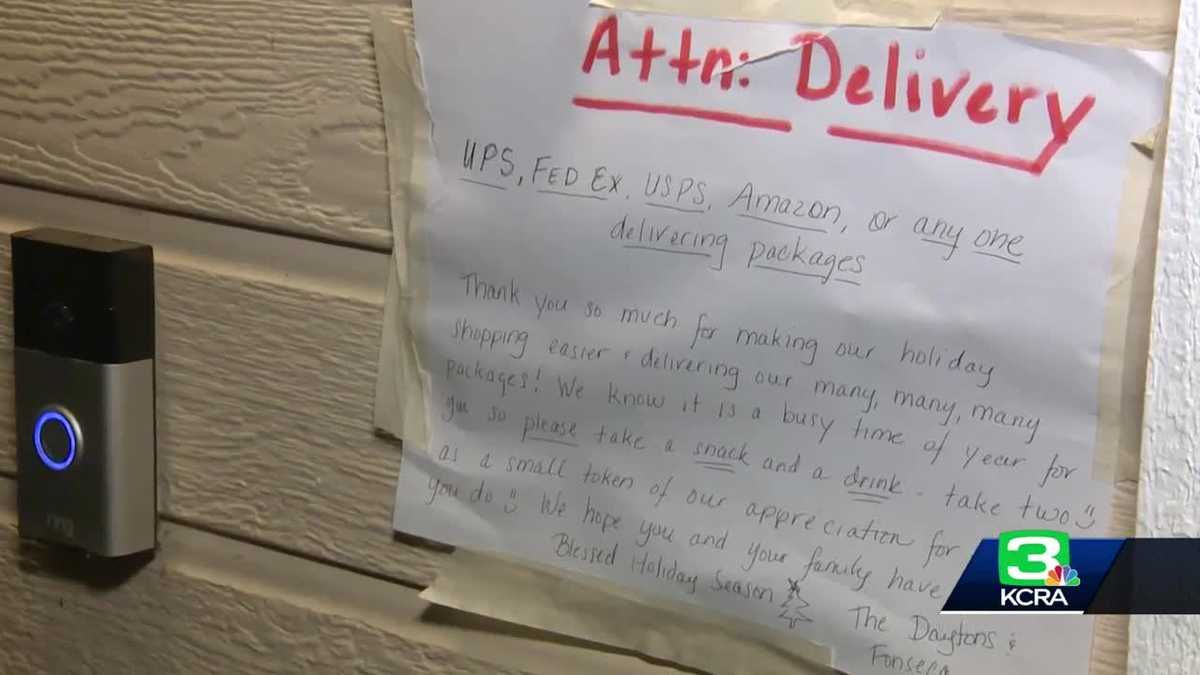 Attn: Delivery
UPS, FED EX, USPS, Amazon, or any one
delivering packages
Thank you so much for making our holiday
shopping easier & delivering our many, many, many
packages! We know it is a busy time of year for
you so please take a snack and a drink - take two
as a small token of our appreciation for
you do We hope you and your family have
Blessed Holiday Season
The Daytons &
Fonseca
ring
3
KCRA